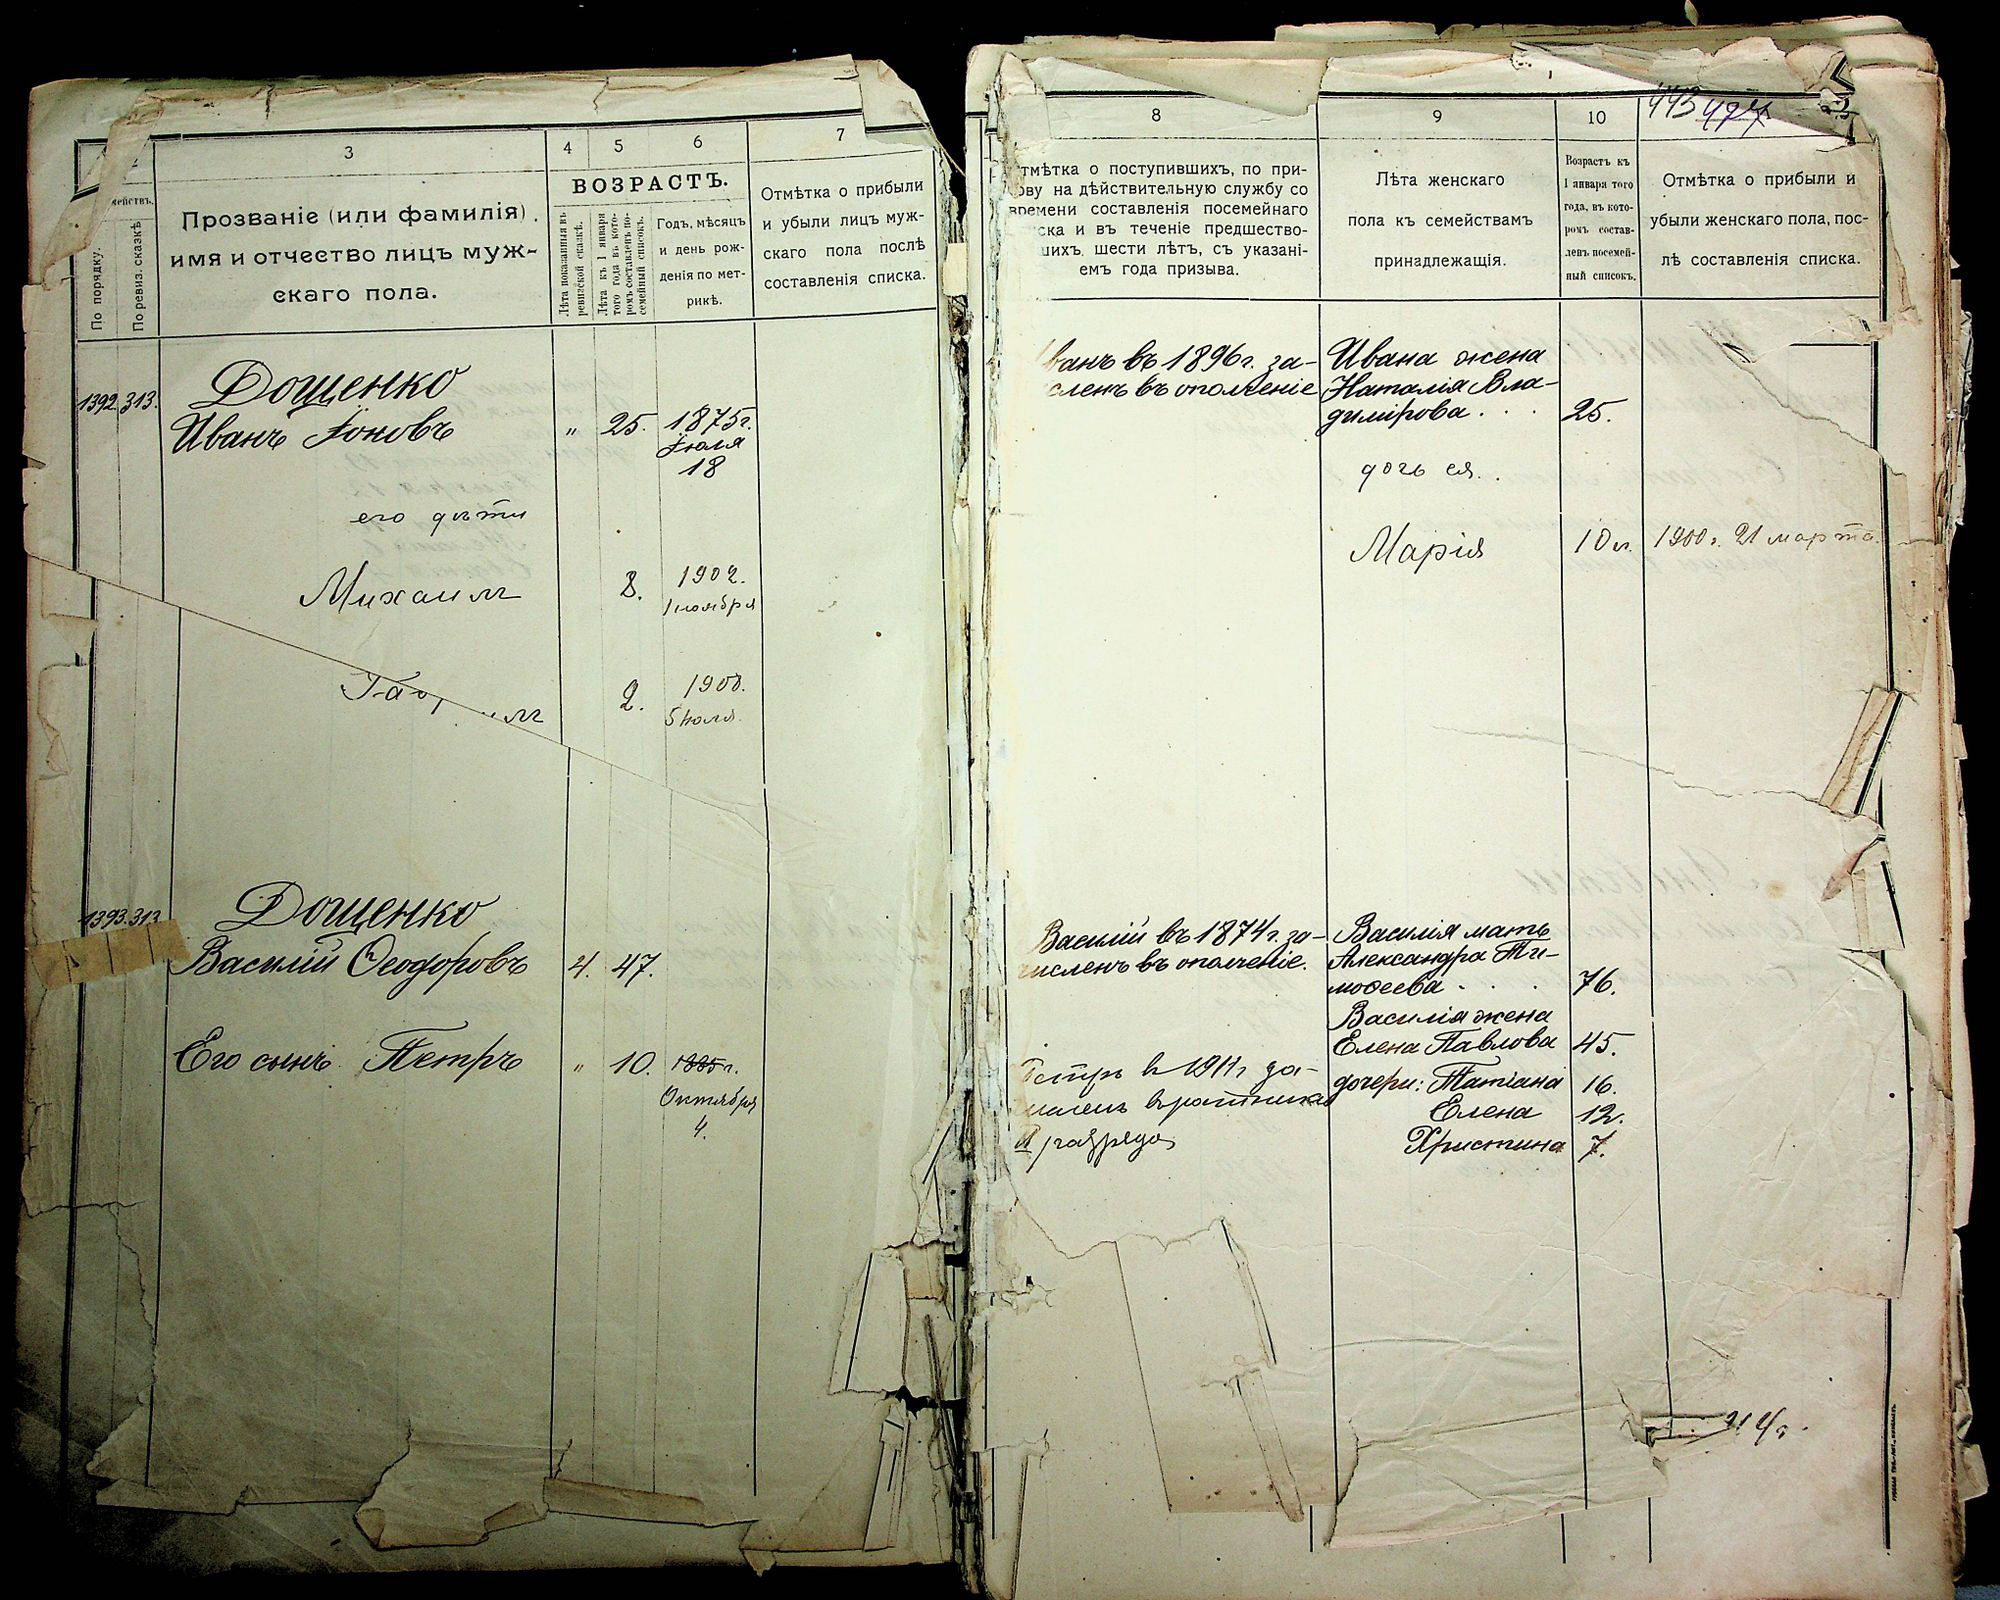 3
4
5
6
7
ействъ.
По порядку.
По ревиз. сказкѣ
Прозваніе (или фамилія),
имя и отчество лицъ муж-
скаго пола.
ВОЗРАСТЪ.
Лѣта показанныя въ
ревизской сказкѣ.
Лѣта къ 1 января
того года въ кото-
ромъ составленъ по-
семейный списокъ.
Годъ, мѣсяцъ
и день рож-
денія по мет-
рикѣ.
Отмѣтка о прибыли
и убыли лицъ муж-
скаго пола послѣ
составленія списка.
1392. 313.
Дощенко
Иванъ Іоновъ „ 25. 1875г.
Іюля
18
его дѣти
Михаилъ 8. 1902.
1 ноября
2. 1908.
5 іюля.
1393. 313
Дощенко
Василій Ѳеодоровъ 4. 47.
Его сынъ Петръ „ 10. 1885г.
Октября
4.
8
9
10
443 427
тмѣтка о поступившихъ, по при-
ову на дѣйствительную службу со
времени составленія посемейнаго
ска и въ теченіе предшество-
шихъ шести лѣтъ, съ указані-
емъ года призыва.
Лѣта женскаго
пола къ семействамъ
принадлежащія.
Возрастъ къ
1 января того
года, въ кото-
ромъ состав-
ленъ посемей-
ный списокъ.
Отмѣтка о прибыли и
убыли женскаго пола, пос-
лѣ составленія списка.
ванъ въ 1896г. за-
сленъ въ ополченіе
Ивана жена
Наталія Вла-
димірова . . . 25.
дочь ея . .
Марія 10 л. 1900 г. 21 марта.
Василій въ 1874г. за-
численъ въ ополченіе.
Василія мать
Александра Ти-
моѳеева . . . 76.
Василія жена
Елена Павлова 45.
дочери: Татіана 16.
Елена 12.
Христина 7.
Петръ в 1911 г за-
численъ в ратники
II разряда
214